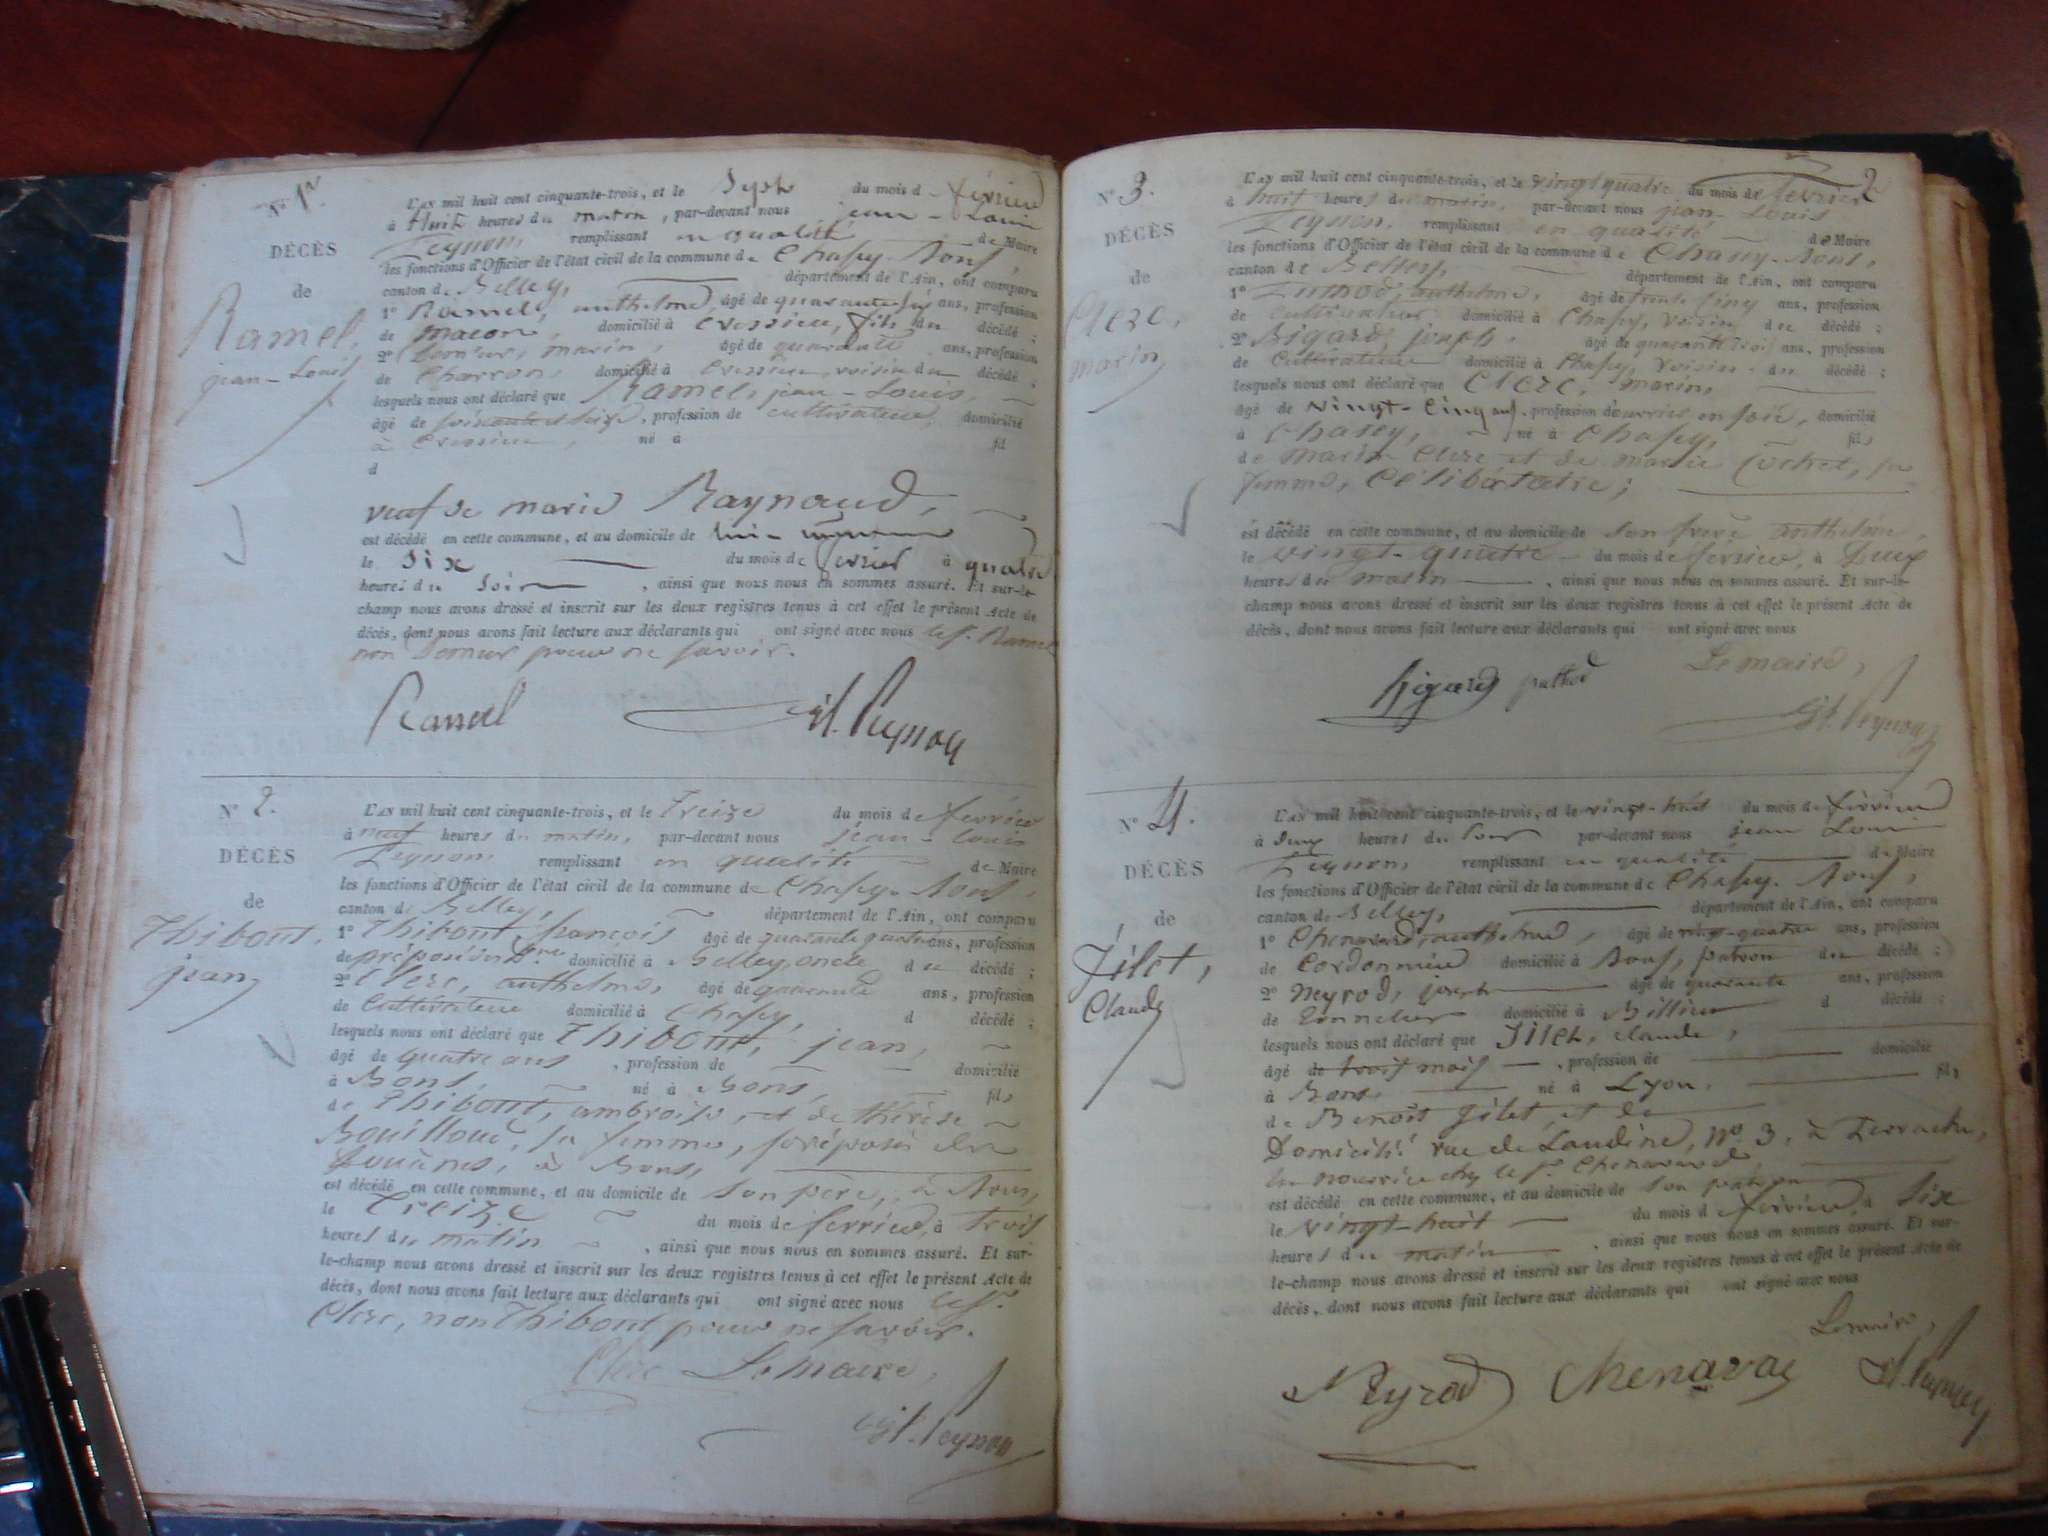 N° 1er
DÉCÈS
de
Ramel,
jean-Louis
L'AN mil huit cent cinquante-trois, et le Sept du mois de février
à Huit heures du matin, par-devant nous jean-Louis
Peynon, remplissant en qualité de Maire
les fonctions d'Officier de l'état civil de la commune de Chasey-Bons,
canton de Belley, département de l'Ain, ont comparu
1° Ramel, anthelme âgé de quarante six ans, profession
de macon, domicilié à Cressieu, fils du décédé ;
2° marin, âgé de quarante ans, profession
de Charron, domicilié à Cressieu, voisin du décédé ;
lesquels nous ont déclaré que Ramel, jean-Louis
âgé de soixante et seize, profession de cultivateur, domicilié
à Cressieu, né à fil
d
veuf de marie Raynaud,
est décédé en cette commune, et au domicile de lui-même
le six du mois de fevrier à quatre
heures du soir, ainsi que nous nous en sommes assuré. Et sur-le-
champ nous avons dressé et inscrit sur les deux registres tenus à cet effet le présent Acte de
décès, dont nous avons fait lecture aux déclarants qui ont signé avec nous le sr. Ramel
non pour ne savoir.
Ramel Peynon
N° 2.
DÉCÈS
de
Thibout,
jean
L'AN mil huit cent cinquante-trois, et le Treize du mois de février
à neuf heures du matin, par-devant nous jean-Louis
Peynon, remplissant en qualité de Maire
les fonctions d'Officier de l'état civil de la commune de Chasey-Bons,
canton de Belley, département de l'Ain, ont comparu
1° Thibout, françois âgé de quarante quatre ans, profession
de préposé des domicilié à Belley, oncle du décédé ;
2° Clerc, anthelme, âgé de quarante ans, profession
de Cultivateur domicilié à Chasey, d décédé ;
lesquels nous ont déclaré que Thibout, jean,
âgé de quatre ans, profession de domicilié
à Bons, né à Bons, fils
de Thibout, ambroise, et de thérèse
Bouilloud, sa femme, préposé des
douânes, à Bons,
est décédé en cette commune, et au domicile de son père, à Bons,
le Treize du mois de fevrier, à trois
heures du matin, ainsi que nous nous en sommes assuré. Et sur-
le-champ nous avons dressé et inscrit sur les deux registres tenus à cet effet le présent Acte de
décès, dont nous avons fait lecture aux déclarants qui ont signé avec nous le sr.
Clerc, non Thibout pour ne savoir.
Clerc Le maire,
Peynon
2
N° 3.
DÉCÈS
de
Clerc,
marin
L'AN mil huit cent cinquante-trois, et le vingt quatre du mois de fevrier
à huit heures du matin, par-devant nous jean-Louis
Peynon, remplissant en qualité de Maire
les fonctions d'Officier de l'état civil de la commune de Chasey-Bons,
canton de Belley, département de l'Ain, ont comparu
1° anthelme, âgé de trente cinq ans, profession
de cultivateur domicilié à Chasey, voisin du décédé ;
2° Rigard, joseph, âgé de quarante trois ans, profession
de Cultivateur domicilié à Chasey, voisin du décédé ;
lesquels nous ont déclaré que Clerc, marin,
âgé de vingt-cinq ans, profession d'ouvrier en soie, domicilié
à Chasey, né à Chasey, fils
de marin Clerc et de marie Cochet, sa
femme, Célibataire ;
est décédé en cette commune, et au domicile de son frère anthelme,
le vingt-quatre du mois de fevrier, à Deux
heures du matin, ainsi que nous nous en sommes assuré. Et sur-le-
champ nous avons dressé et inscrit sur les deux registres tenus à cet effet le présent Acte de
décès, dont nous avons fait lecture aux déclarants qui ont signé avec nous
Le maire,
Rigard
Peynon
N° 4.
DÉCÈS
de
Jilet,
Claude
L'AN mil huit cent cinquante-trois, et le vingt-huit du mois de février
à Deux heures du soir par-devant nous jean Louis
Peynon, remplissant en qualité de Maire
les fonctions d'Officier de l'état civil de la commune de Chasey-Bons,
canton de Belley, département de l'Ain, ont comparu
1° Chenavard, anthelme, âgé de vingt-quatre ans, profession
de Cordonnier domicilié à Bons, patron du décédé ;
2° Neyrod, joseph âgé de quarante ans, profession
de Tonnelier domicilié à Billieu d décédé ;
lesquels nous ont déclaré que Jilet, claude,
âgé de trois mois, profession de domicilié
à Bons né à Lyon, fils
de Benoit Jilet, et de
Domicilié rue de Laudine, No. 3, à Perrache,
en nourrice chez le sr. Chenavard
est décédé en cette commune, et au domicile de son patron
le vingt-huit du mois de février, à six
heures du matin, ainsi que nous nous en sommes assuré. Et sur-
le-champ nous avons dressé et inscrit sur les deux registres tenus à cet effet le présent Acte de
décès, dont nous avons fait lecture aux déclarants qui ont signé avec nous
Le maire,
Neyrod Chenavad Peynon